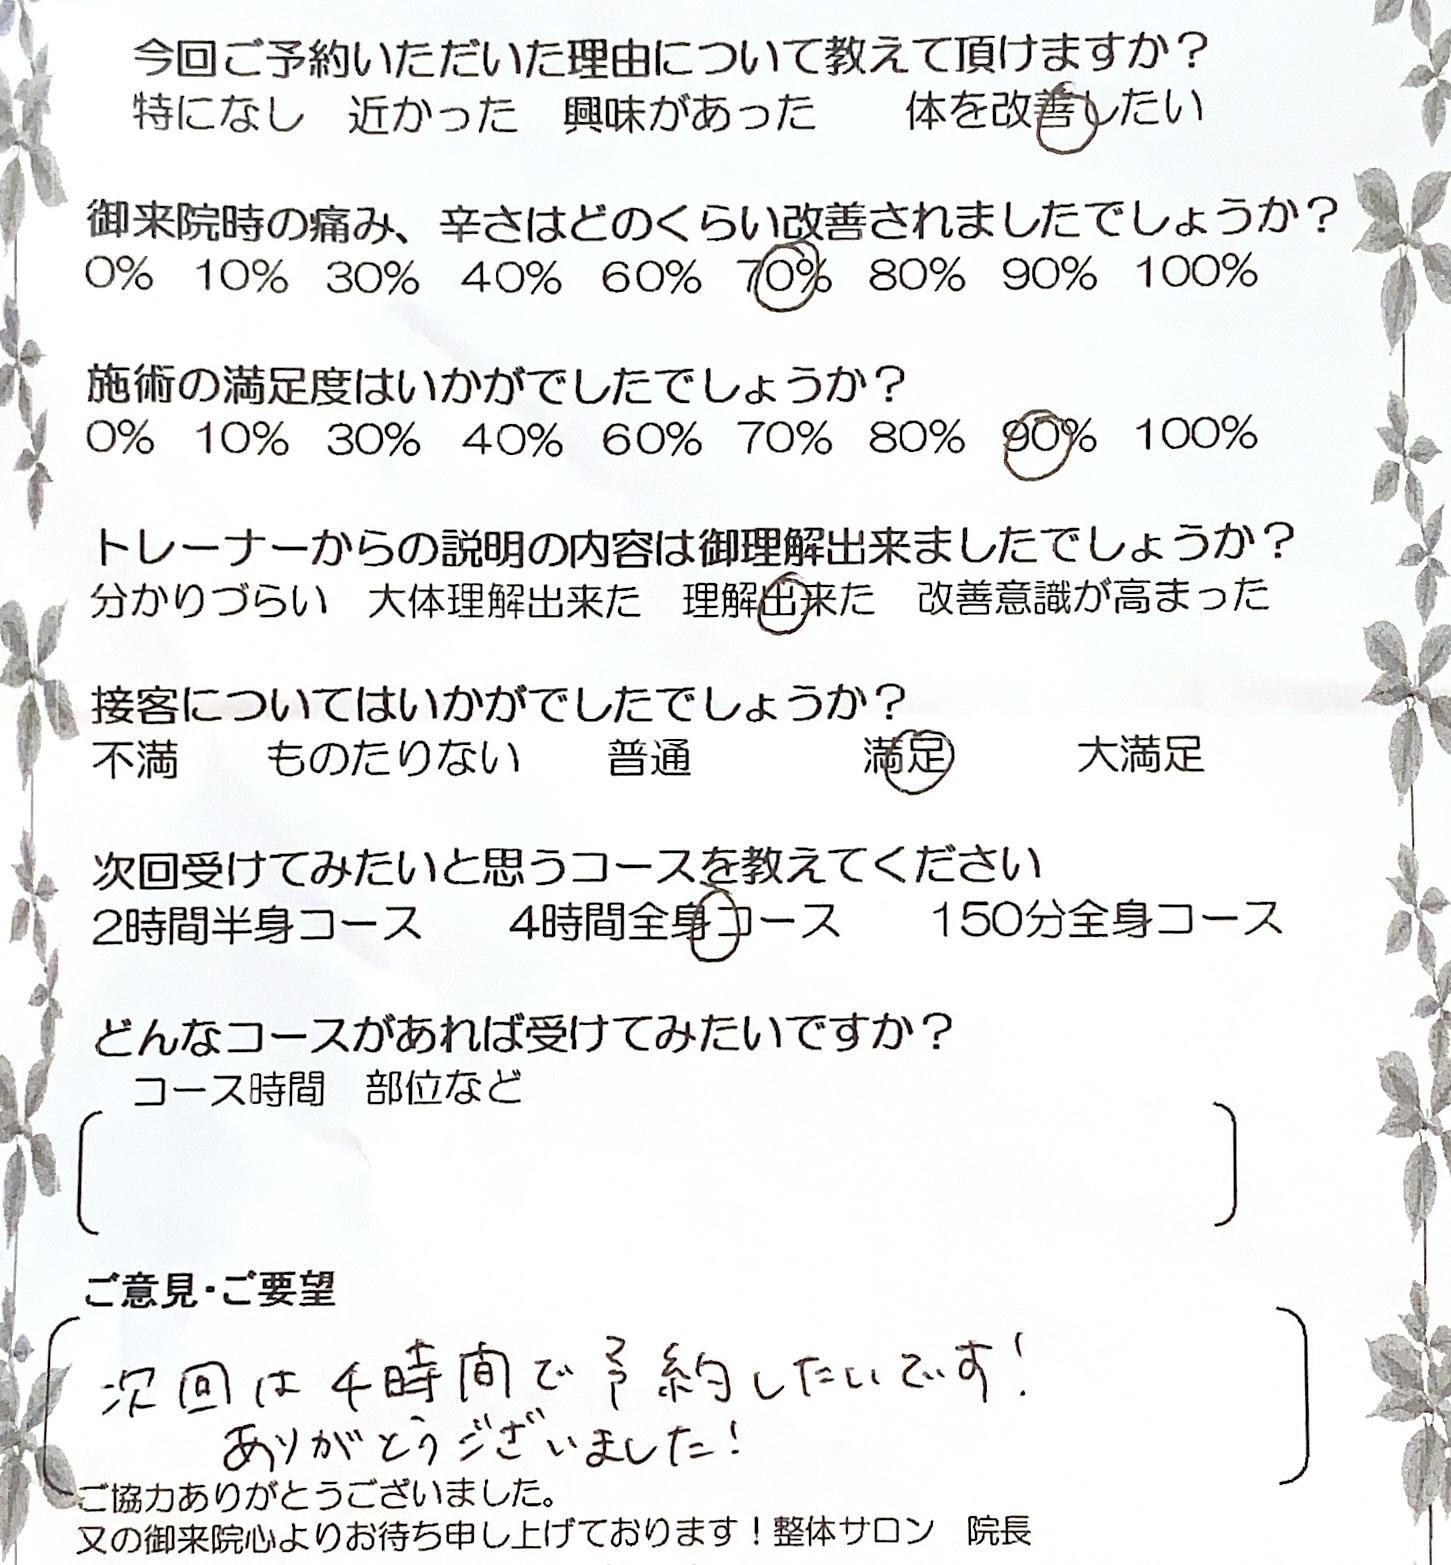 今回ご予約いただいた理由について教えて頂けますか？
特になし　近かった　興味があった　　体を改善したい
御来院時の痛み、辛さはどのくらい改善されましたでしょうか？
0%　10%　30%　40%　60%　70%　80%　90%　100%
施術の満足度はいかがでしたでしょうか？
0%　10%　30%　40%　60%　70%　80%　90%　100%
トレーナーからの説明の内容は御理解出来ましたでしょうか？
分かりづらい　大体理解出来た　理解出来た　改善意識が高まった
接客についてはいかがでしたでしょうか？
不満　　ものたりない　　普通　　　　満足　　　大満足
次回受けてみたいと思うコースを教えてください
2時間半身コース　　4時間全身コース　　150分全身コース
どんなコースがあれば受けてみたいですか？
コース時間　部位など
ご意見・ご要望
次回は4時間で予約したいです！
ありがとうございました！
ご協力ありがとうございました。
又の御来院心よりお待ち申し上げております！整体サロン　院長